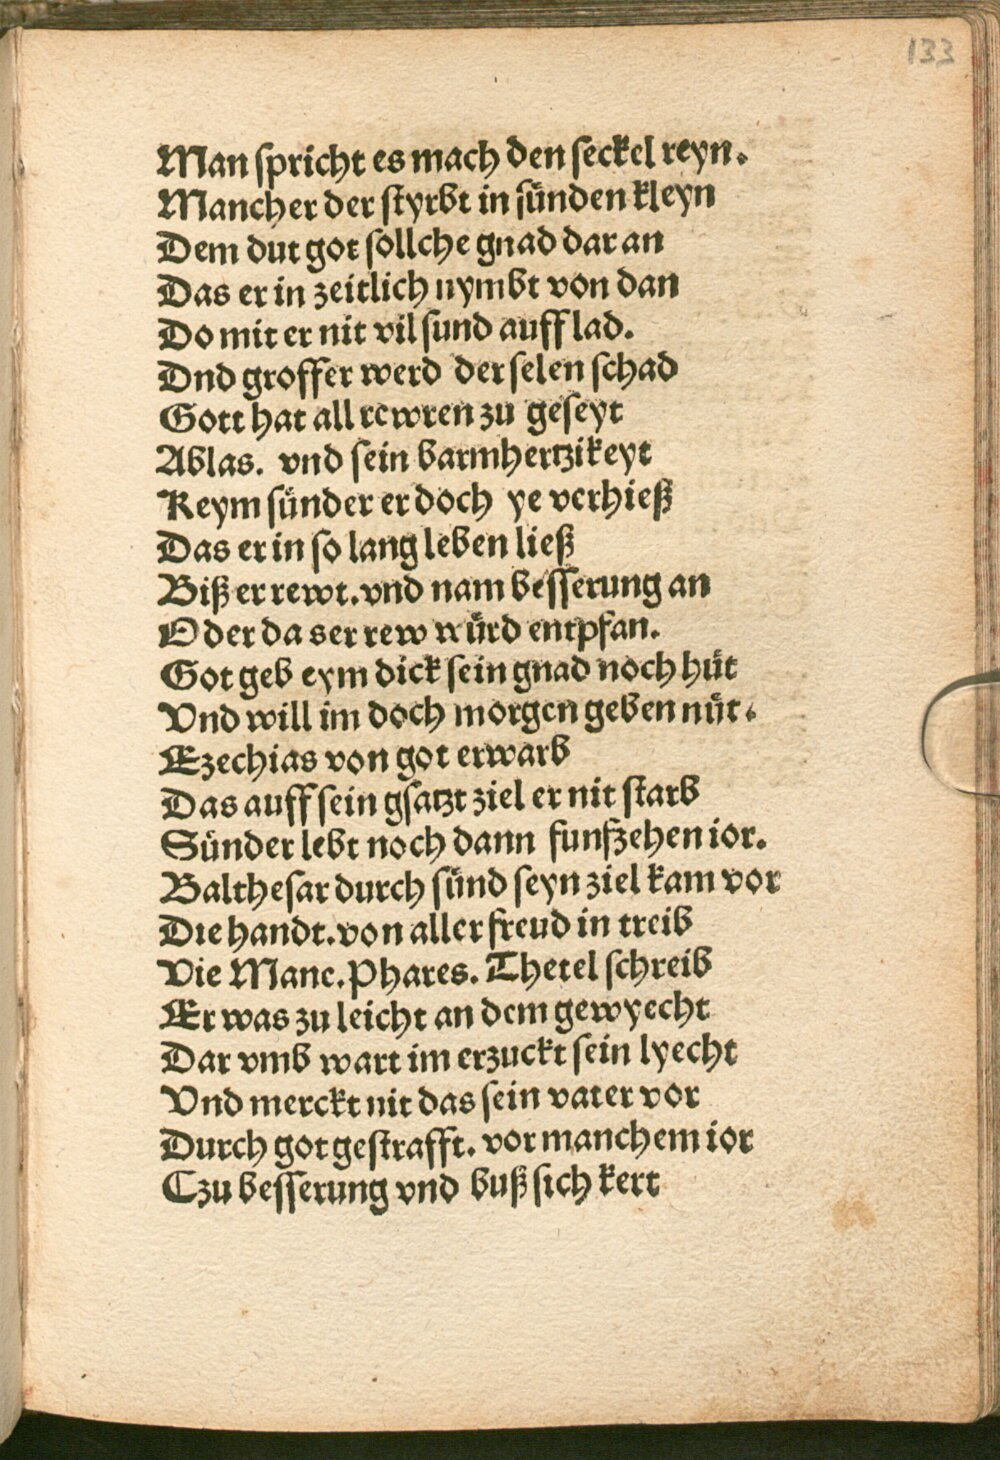 133
Man spricht es mach den seckel reyn.
Mancher der styrbt in sünden kleyn
Dem dut got sollche gnad dar an
Das er in zeitlich nymbt von dan
Do mit er nit vil sund auff lad.
Dnd groffer werd der selen schad
Gott hat all rewren zu geseyt
Ablas. vnd sein barmhertzikeyt
Keym sünder er doch ye verhieß
Das er in so lang leben ließ
Biß er rewt. vnd nam besserung an
Oder da ser rew würd entpfan.
Got geb eym dick sein gnad noch hüt
Vnd will im doch morgen geben nüt.
Ezechias von got erwarb
Das auff sein gsatzt ziel er nit starb
Sünder lebt noch dann funfzehen ior.
Balthesar durch sünd seyn ziel kam vor
Die handt. von aller freud in treib
Vie Mane. Phares. Thetel schreib
Er was zu leicht an dem gewyecht
Dar vmb wart im erzuckt sein lyecht
Vnd merckt nit das sein vater vor
Durch got gestrafft. vor manchem ior
Czu besserung vnd buß sich kert